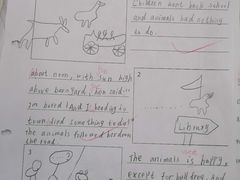 Children went back school
and animals had nothing
to do.
about noon, with sun high
above barnyard, hen said...
I'm bored! And I need go to
town, find something to do!"
the animals followed hen down
the road.
2
Library
3
The animals is happy
except for bullfrog, and